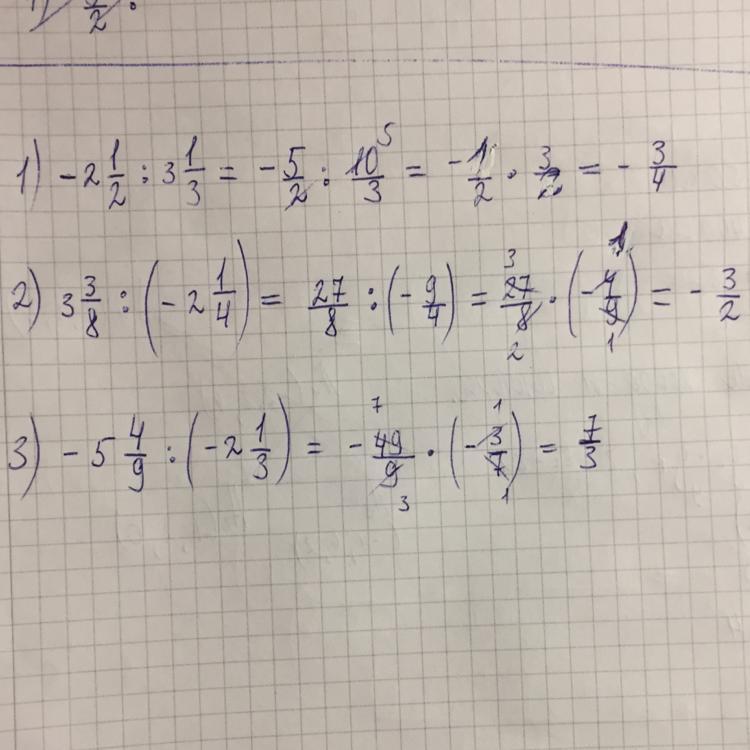 1) -2 1/2 : 3 1/3 = -5/2 : 10/3 = -1/2 · 3/2 = -3/4
2) 3 3/8 : (-2 1/4) = 27/8 : (-9/4) = 27/8 · (-4/9) = -3/2
3) -5 4/9 : (-2 1/3) = -49/9 · (-3/7) = 7/3